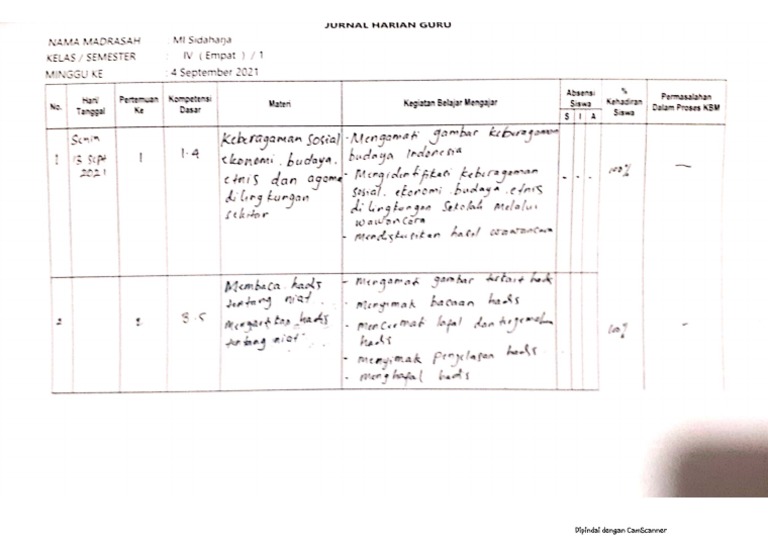 JURNAL HARIAN GURU
NAMA MADRASAH : MI Sidaharja
KELAS / SEMESTER : IV ( Empat ) / 1
MINGGU KE : 4 September 2021
No. Hari Tanggal Pertemuan Ke Kompetensi Dasar Materi Kegiatan Belajar Mengajar Absensi Siswa S I A % Kehadiran Siswa Permasalahan Dalam Proses KBM
1 Senin 13 Sept 2021 1 1.4
Keberagaman sosial
ekonomi. budaya.
etnis dan agama
dilingkungan
sekitar
- Mengamati gambar keberagaman
budaya Indonesia
- Mengidintifikasi keberagaman
sosial. ekonomi. budaya. etnis
di lingkungan Sekolah Melalui
wawancara
- Mendiskusikan hasil wawancara
- - - 100% -
2 2 3.5
Membaca hadis
tentang niat
Mengartikan hadis
tentang niat
- Mengamati gambar terkait hadis
- Menyimak bacaan hadis
- Mencermati lafal dan terjemahan
hadis
- Menyimak penjelasan hadis
- Menghafal hadis
100% -
Dipindai dengan CamScanner